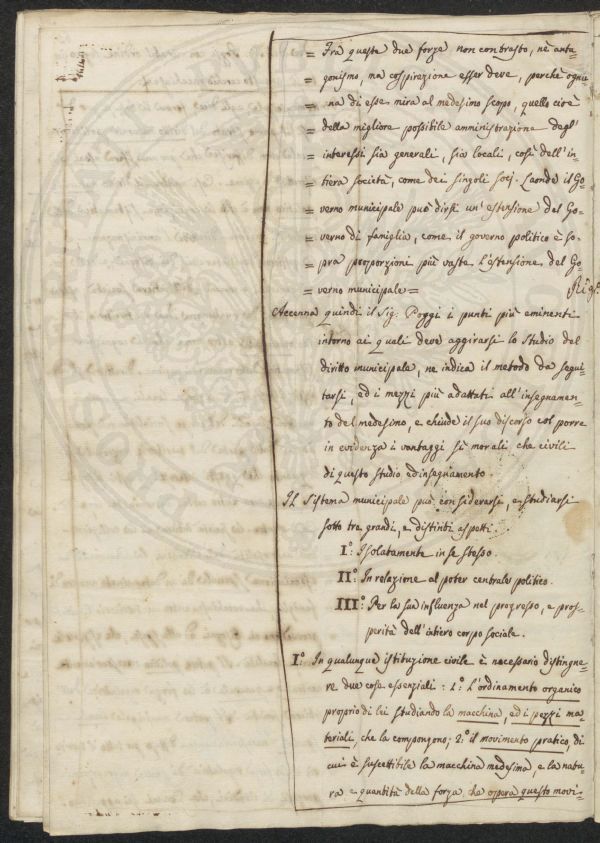 = Fra queste due forze non contrasto, nè anta-
= gonismo, ma cospirazione esser deve, perchè ognu-
= na di esse mira al medesimo scopo, quello cioè
= della migliore possibile amministrazione degl'
= interessi sia generali, sia locali, così dell'in-
= tiera società, come dei singoli socj. Laonde il Go-
= verno municipale può dirsi un'estensione del Go-
= verno di famiglia, come il governo politico è so-
= pra proporzioni più vaste l'estensione del Go-
= verno municipale =
Accenna quindi il Sig. Poggi i punti più eminenti
intorno ai quali deve aggirarsi lo studio del
diritto municipale, ne indica il metodo da segui-
tarsi, ed i mezzi più adattati all'insegnamen-
to del medesimo, e chiude il suo discorso col porre
in evidenza i vantaggi sì morali che civili
di questo studio, ed insegnamento.
Il Sistema municipale può considerarsi, e studiarsi
sotto tre grandi, e distinti aspetti.
I.° Isolatamente in se stesso.
II.° In relazione al poter centrale politico.
III.° Per la sua influenza nel progresso, e pros-
perità dell'intiero corpo sociale.
I.° In qualunque istituzione civile è necessario distingue-
re due cose essenziali: 1.° L'ordinamento organico
proprio di lei studiando la macchina, ed i pezzi ma-
teriali, che la compongono; 2.° il movimento pratico, di
cui è suscettibile la macchina medesima, e la natu-
ra e quantità della forza, che opera questo movi-